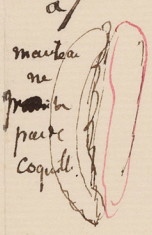 a/
manteau
ne
pas de
coquille